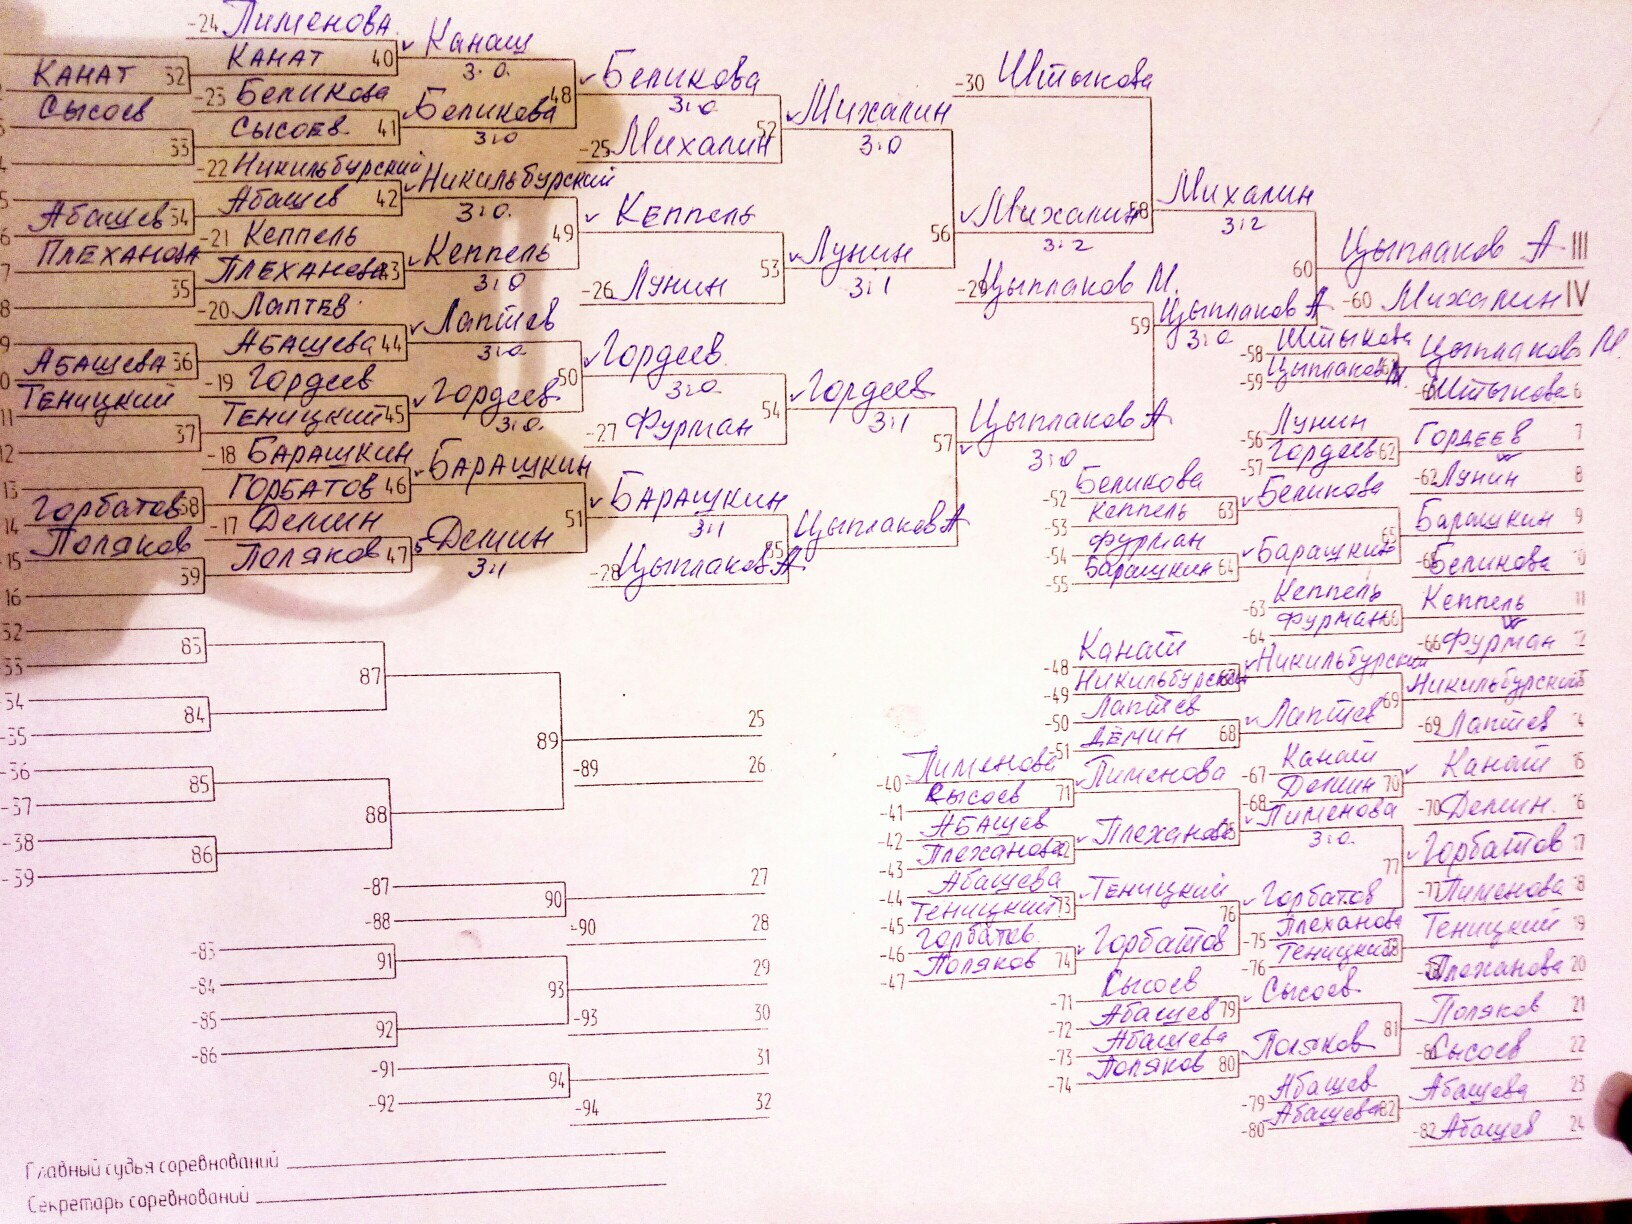 -24 Пименова
КАНАТ 32
КАНАТ 40
Канаш
3:0
Сысоев
-23 Беликова
48
Беликова
3:0
33
СЫСОЕВ 41
Беликова
3:0
-25 Михалин 52
Михалин
3:0
-30 Штыкова
-22 Никильбурский
Абашев 34
Абашев 42
Никильбурский
3:0
Кеппель
ПЛЕХАНОВА
-21 Кеппель
49
35
ПЛЕХАНОВА 43
Кеппель
3:0
-26 Лунин
53
Лунин
3:1
56
Михалин 58
3:2
Михалин
3:2
-20 Лаптев
АБАШЕВА 36
АБАШЕВА 44
Лаптев
3:0
Гордеев
3:0
-29 Цыплаков М.
59
Цыплаков А
3:0
60
Цыплаков А III
-60 Михалин IV
ТЕНИЦКИЙ
-19 Гордеев
50
37
ТЕНИЦКИЙ 45
Гордеев
3:0
-27 Фурман
54
Гордеев
3:1
57
Цыплаков А
3:0
-18 БАРАШКИН
Горбатов 38
ГОРБАТОВ 46
БАРАШКИН
БАРАШКИН
3:1
Поляков
-17 Демин
51
39
ПОЛЯКОВ 47
Демин
3:1
-28 Цыплаков А
55
Цыплаков А
-58 Штыкова
-59 Цыплаков М.
Цыплаков М.
Штыкова 6
-56 Лунин
-57 Гордеев 62
ГОРДЕЕВ 7
-62 Лунин 8
-52 Беликова
-53 Кеппель 63
Беликова
-54 Фурман
-55 Барашкин 64
Барашкин
65
Барашкин 9
-65 Беликова 10
-63 Кеппель
-64 Фурман 66
Кеппель 11
-66 Фурман 12
-48 Канат
-49 Никильбурский
Никильбурский
-50 Лаптев
-51 ДЁМИН 68
Лаптев
69
Никильбурский
-69 Лаптев 14
-67 Канат
-68 Демин 70
Канат 15
-70 Демин 16
-40 Пименова
-41 Сысоев 71
Пименова
-42 АБАШЕВ
-43 Плеханова
Плеханова
Пименова
3:0
-44 Абашева
-45 Теницкий 73
Теницкий
-46 Горбатов
-47 Поляков 74
Горбатов
76
Горбатов
77
Горбатов 17
-77 Пименова 18
-75 Плеханова
-76 Теницкий
Теницкий 19
Плеханова 20
-71 Сысоев
-72 Абашев 79
Сысоев
-73 Абашева
-74 Поляков 80
Поляков
81
Поляков 21
Сысоев 22
-79 Абашев
-80 Абашева 82
Абашева 23
-82 Абашев 24
83
84
85
86
87
88
89
25
-89 26
-87
-88
90
27
-90 28
-83
-84
91
-85
-86
92
93
29
-93 30
-91
-92
94
31
-94 32
Главный судья соревнований
Секретарь соревнований